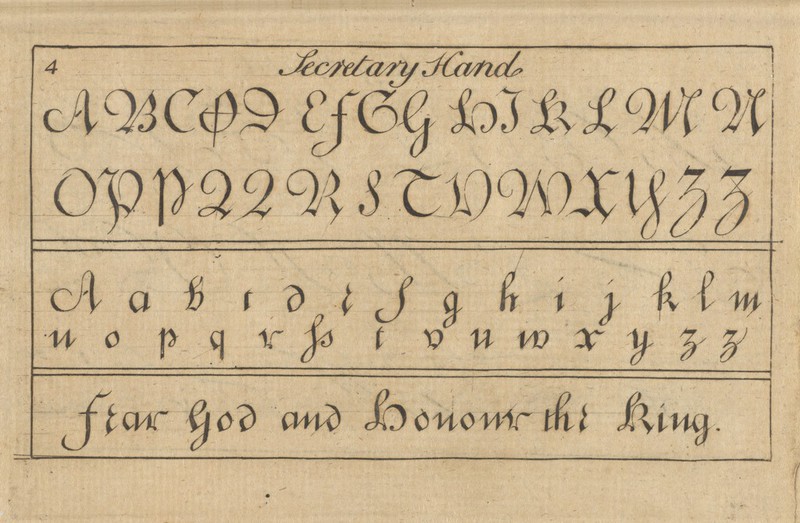 4
Secretary Hand
A B C D D E F G G H I K L M N
O P P Q Q R S T V W X Y Z Z
A a b c d e f g h i j k l m
n o p q r ſs t v u w x y z z
Fear God and Honour the King.